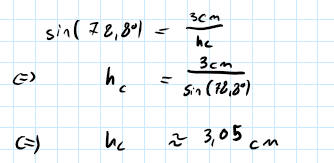 sin(78,8°) = 3cm / hc
⇔ hc = 3cm / sin(78,8°)
⇔ hc ≈ 3,05 cm